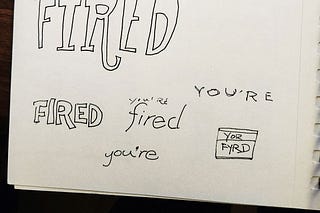 FIRED
YOU'RE
FIRED
you're
fired
you're
YOR
FYRD